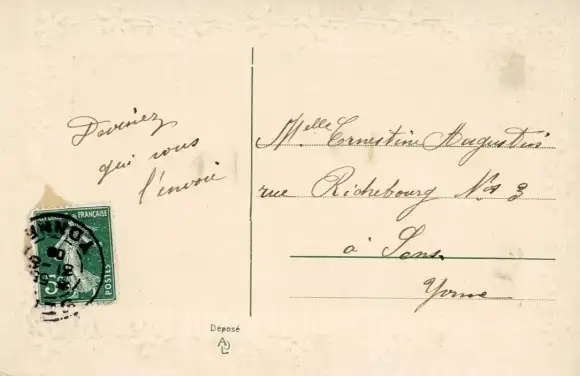 Devinez
qui vous
l'envoie
Melle Ernestine Augustin
rue Richebourg No 3
à Sens
Yonne
FRANÇAISE
POSTES
5c
YONNE
Déposé